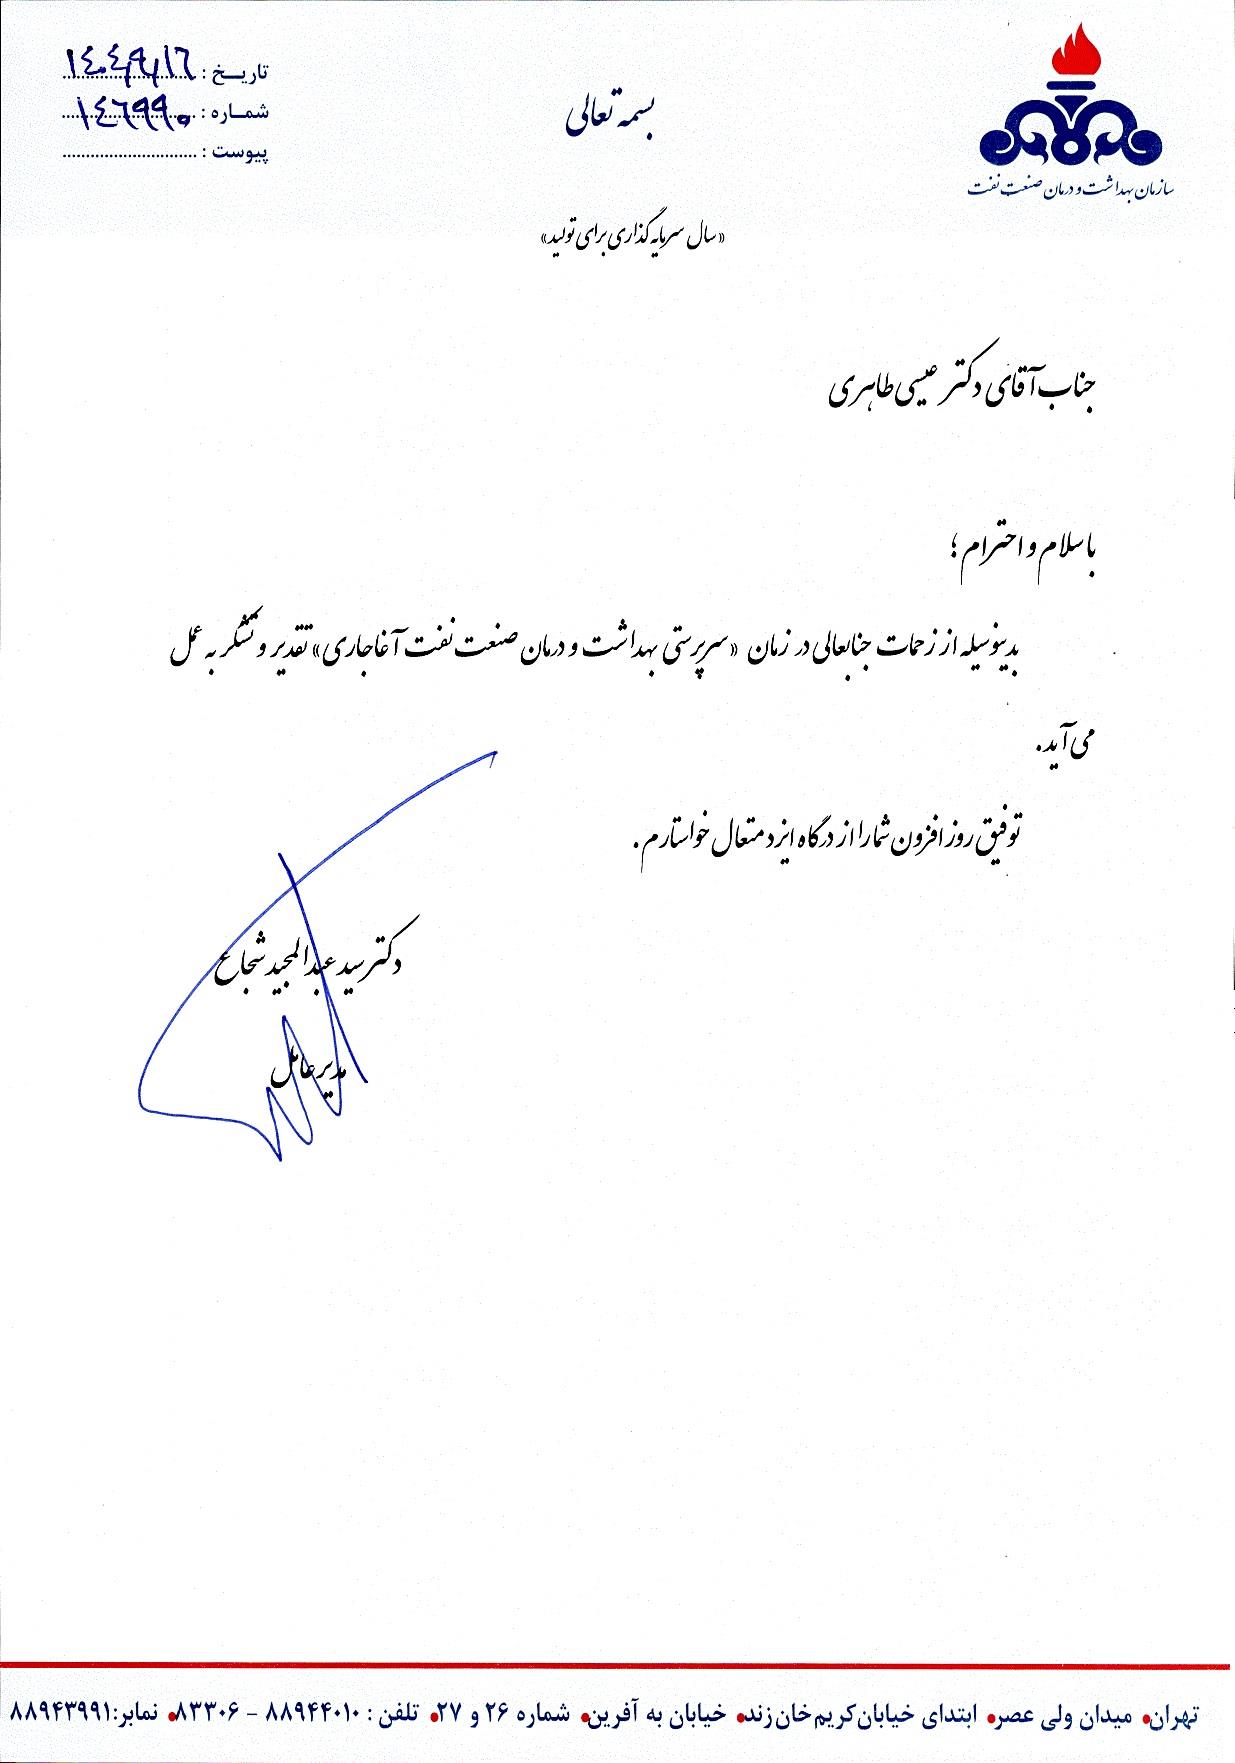 تاریخ : ۱۴۰۴/۹/۱۶
شماره : ۱۴۶۹۹۰
پیوست :
بسمه تعالی
سازمان بهداشت و درمان صنعت نفت
«سال سرمایه گذاری برای تولید»
جناب آقای دکتر عیسی طاهری
با سلام و احترام ؛
بدینوسیله از زحمات جنابعالی در زمان «سرپرستی بهداشت و درمان صنعت نفت آغاجاری» تقدیر و تشکر به عمل
می آید.
توفیق روز افزون شما را از درگاه ایزد متعال خواستارم.
دکتر سید عبدالمجید شجاع
مدیر عامل
تهران• میدان ولی عصر• ابتدای خیابان کریم خان زند• خیابان به آفرین• شماره ۲۶ و ۲۷• تلفن : ۸۸۹۴۴۰۱۰ - ۸۳۳۰۶• نمابر:۸۸۹۴۳۹۹۱